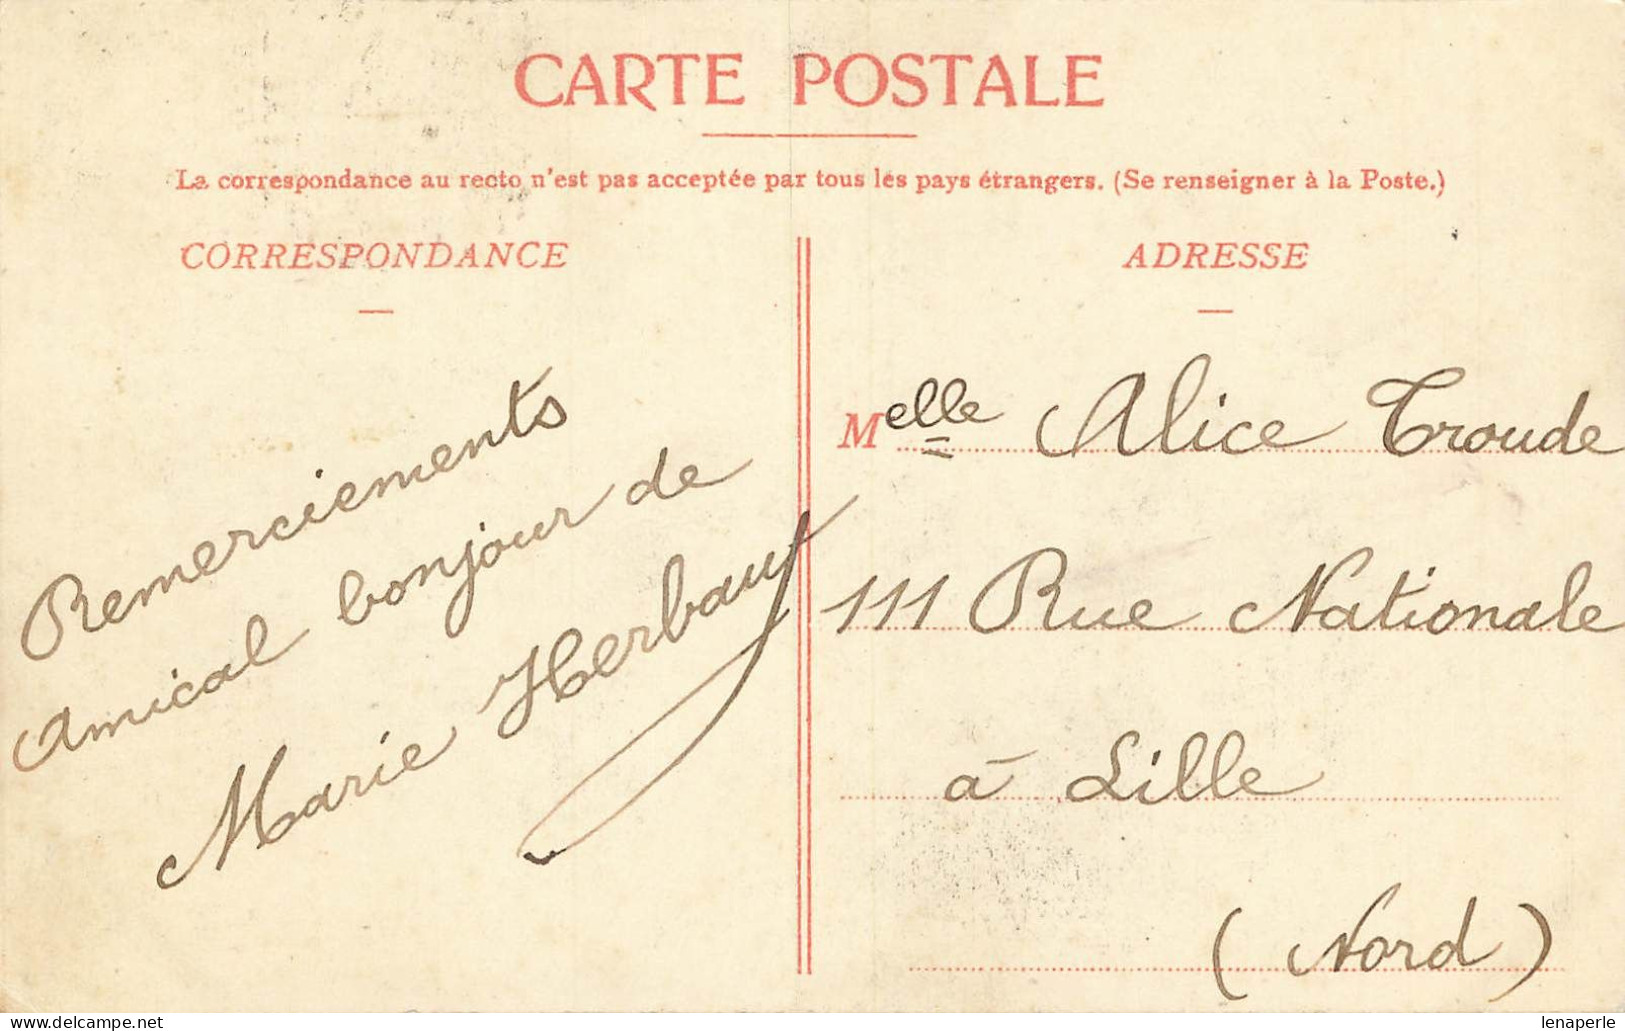 CARTE POSTALE
La correspondance au recto n'est pas acceptée par tous les pays étrangers. (Se renseigner à la Poste.)
CORRESPONDANCE
Remerciements
amical bonjour de
Marie Herbaux
ADRESSE
Melle Alice Troude
111 Rue Nationale
à Lille
(Nord)
delcampe.net
lenaperle